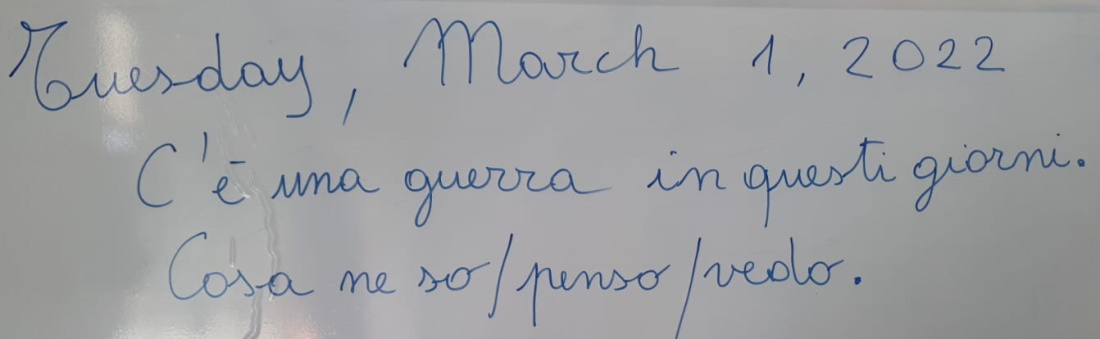 Tuesday, March 1, 2022
C'è una guerra in questi giorni.
Cosa ne so/penso/vedo.